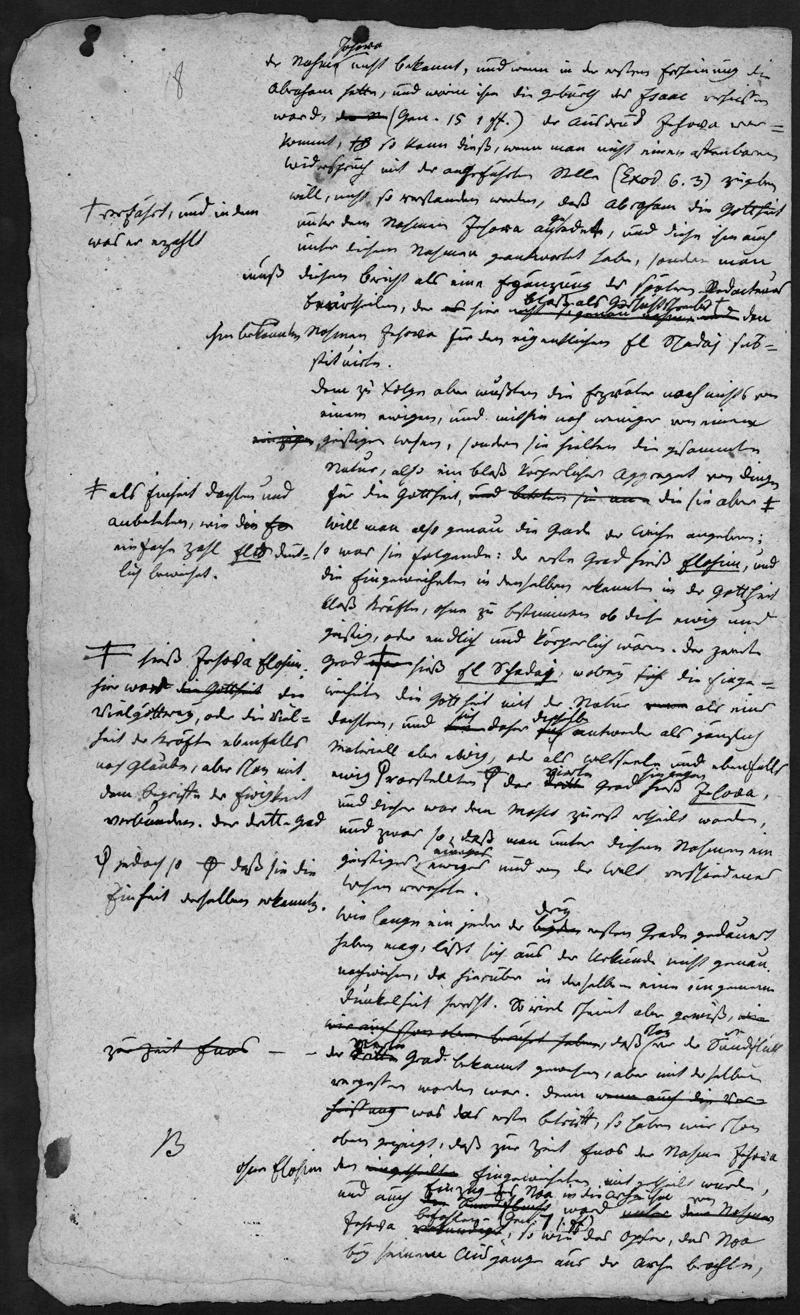 18
Jehova
der Nahme nicht bekannt, und wenn in der ersten Erscheinung die
Abraham hatte, und worin ihm die Geburth des Isaac verheissen
ward, (Gen. 15 1 ff.) der Ausdruck Jehova vor=
kommt, so kann dieß, wenn man nicht einen offenbaren
Widerspruch mit der angeführten Stelle (Exod 6. 3) zugeben
will, nicht so verstanden werden, daß Abraham die Gottheit
unter dem Nahmen Jehova anredete, und diese ihm auch
unter diesem Nahmen geantwortet habe, sondern man
muß diesen Bericht als eine Ergänzung des spätern Redacteurs
beurtheilen, der hier bloß als Geschichtschreiber † den
ihm bekannten Nahmen Jehova für den eigentlichen El Schadaj sub=
stituirte.
† verfährt, und in dem
was er erzählt
Dem zu Folge aber wußten die Erzväter noch nichts von
einem ewigen, und mithin noch weniger von einem
einzigen, geistigen Wesen, sondern sie hielten die gesammte
Natur, also ein bloß körperliches Aggregat von Dingen
für die Gottheit, die sie aber ‡
‡ als Einheit dachten und
anbeteten, wie die
einfache Zahl El deut=
lich beweiset.
Will man also genau die Grade der Weihe angeben;
so war sie folgende: der erste Grad hieß Elohim, und
die Eingeweihten in demselben erkannten in der Gottheit
bloß Kräfte, ohne zu bestimmen ob diese ewig und
geistig, oder endlich und körperlich wären. Der zweite
Grad ‡ hieß El Schadaj, wobey die Einge=
weihten die Gottheit mit der Natur als eins
dachten, und sich daher dieselbe entweder als gänzlich
materiell aber ewig, oder als Weltseele und ebenfalls
ewig vorstellten der vierte Grad hingegen hieß Jehova,
und dieser war dem Moses zuerst ertheilt worden,
und zwar so, daß man unter diesem Nahmen ein
geistiges, einziges ewiges und von der Welt verschiedenes
Wesen verehrte.
‡ hieß Jehova Elohim.
hier ward die
Vielgötterey, oder die Viel=
heit der Kräfte ebenfalls
noch Glaube, aber schon mit
dem Begriffe der Ewigkeit
verbunden. Der dritte Grad
jedoch so daß sie die
Einheit derselben erkannte.
Wie lange ein jeder der drey ersten Grade gedauert
haben mag, läßt sich aus der Urkunde nicht genau
nachweisen, da hierüber in derselben eine ungemeine
Dunkelheit herrscht. So viel scheint aber gewiß,
daß schon vor der Sündfluth
zur Zeit Enos — - der zweyte Grad bekannt gewesen, aber mit derselben
vergessen worden war. Denn wenn auch die Ver=
heissung was das erste betrifft, so haben wir schon
oben gezeigt, daß zur Zeit Enos der Nahme Jehova
ohne Elohim den Eingeweihten mitgetheilt wurde,
und auch Einzug des Noa in die Arche von
Jehova befohlen (Gen. 7 1. ff), so wie das Opfer, das Noa
bey seinem Ausgange aus der Arche brachte,